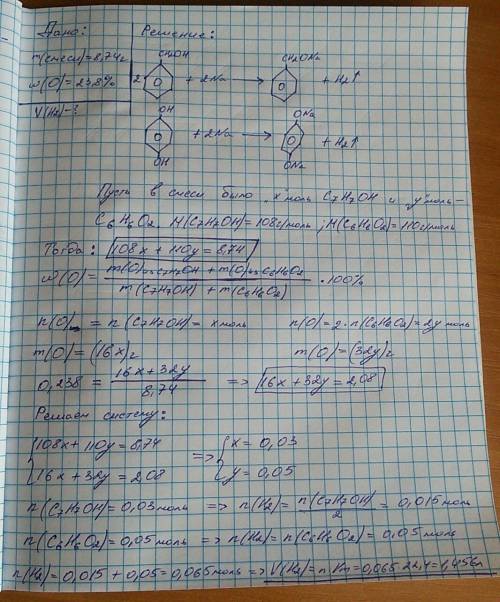 Дано:
m(смеси)=8,74г
w(O)=23,8%
V(H₂)-?
Решение:
CH₂OH
2 + 2Na → + H₂↑
CH₂ONa
OH
+ 2Na → + H₂↑
OH
ONa
ONa
Пусть в смеси было "x" моль C₇H₇OH и "y" моль -
C₆H₆O₂. M(C₇H₇OH)=108г/моль; M(C₆H₆O₂)=110г/моль
Тогда: 108x + 110y = 8,74
w(O) = m(O) из C₇H₇OH + m(O) из C₆H₆O₂ / m(C₇H₇OH) + m(C₆H₆O₂) · 100%
n(O) = n(C₇H₇OH) = x моль n(O) = 2·n(C₆H₆O₂) = 2y моль
m(O) = (16x)г m(O) = (32y)г
0,238 = 16x + 32y / 8,74 => 16x + 32y = 2,08
Решаем систему:
108x + 110y = 8,74 => x = 0,03
16x + 32y = 2,08 y = 0,05
n(C₇H₇OH) = 0,03 моль => n(H₂) = n(C₇H₇OH) / 2 = 0,015 моль
n(C₆H₆O₂) = 0,05 моль => n(H₂) = n(C₆H₆O₂) = 0,05 моль
n(H₂) = 0,015 + 0,05 = 0,065 моль => V(H₂) = n·Vm = 0,065·22,4 = 1,456л